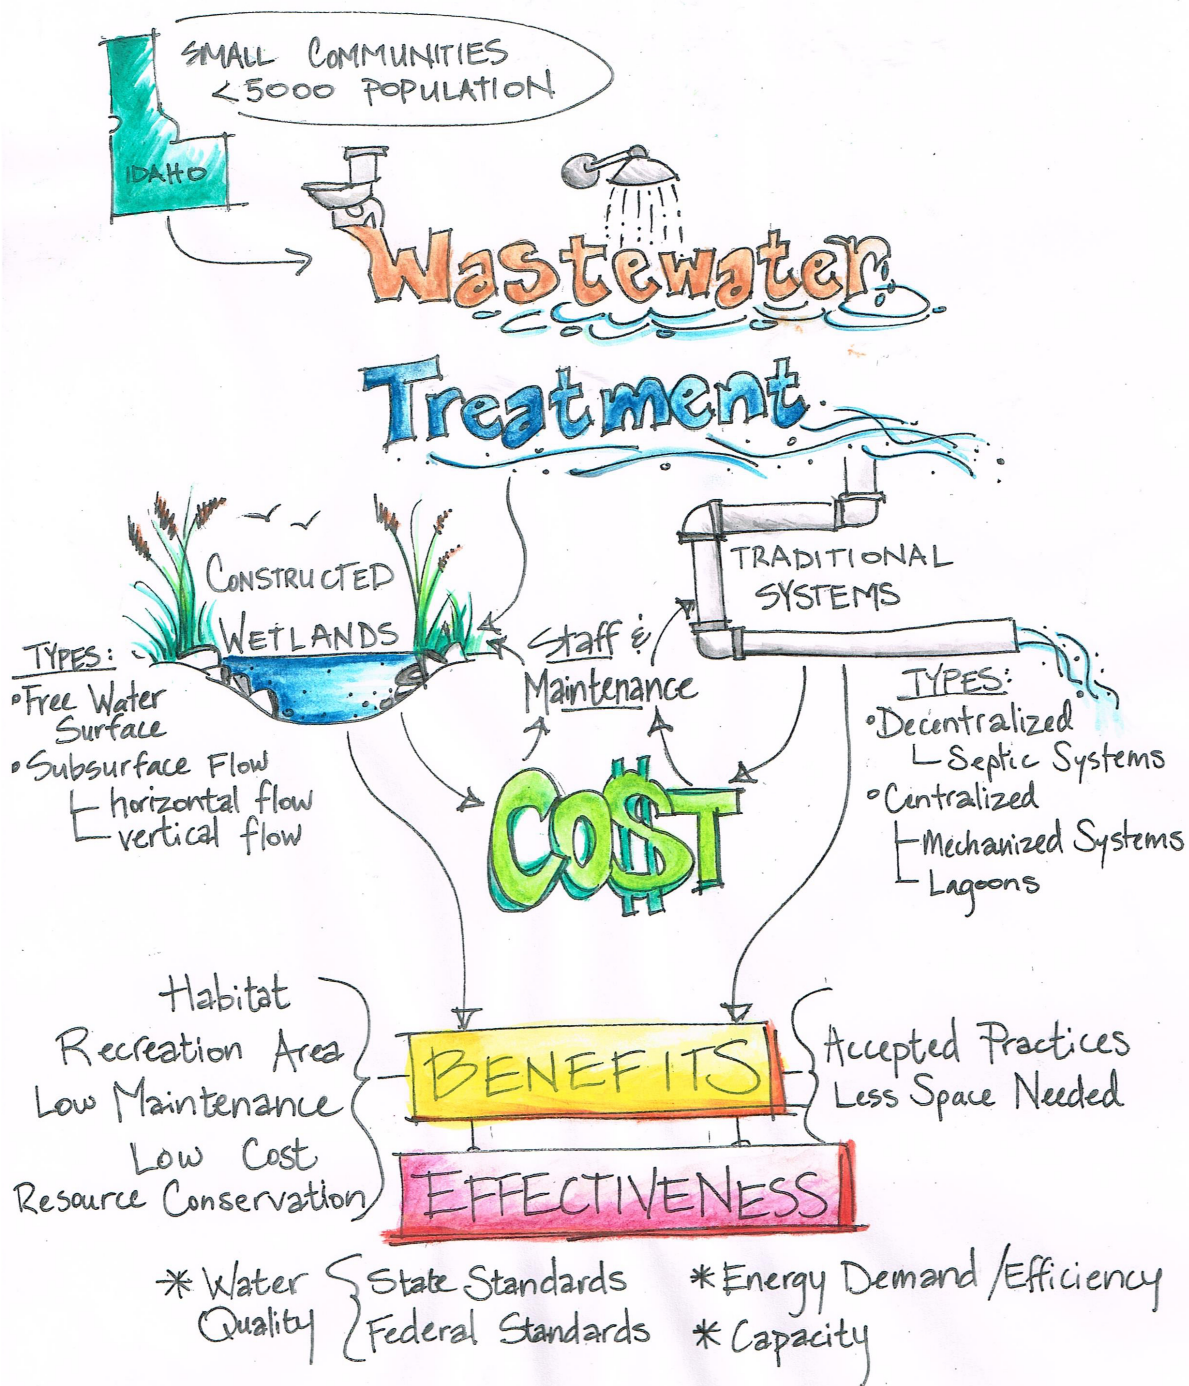 SMALL COMMUNITIES
<5000 POPULATION
IDAHO
Wastewater
Treatment
CONSTRUCTED
WETLANDS
TYPES:
•Free Water
Surface
•Subsurface Flow
horizontal flow
vertical flow
Staff &
Maintenance
TRADITIONAL
SYSTEMS
TYPES:
•Decentralized
Septic Systems
•Centralized
Mechanized Systems
Lagoons
CO$T
Habitat
Recreation Area
Low Maintenance
Low Cost
Resource Conservation
BENEFITS
Accepted Practices
Less Space Needed
EFFECTIVENESS
* Water
Quality
State Standards
Federal Standards
* Energy Demand/Efficiency
* Capacity